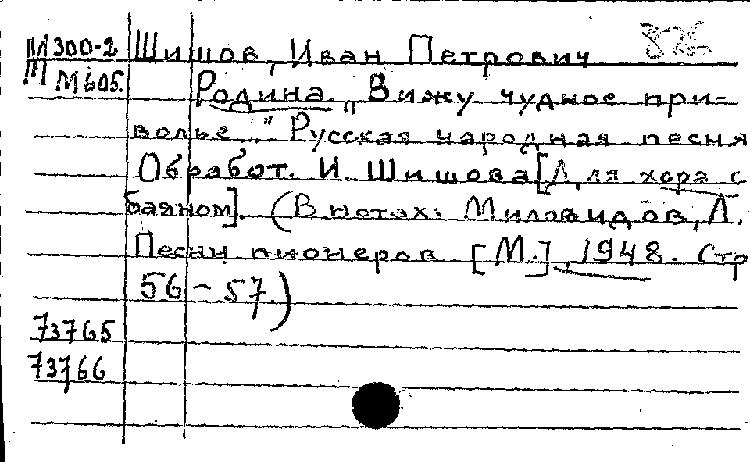 М300-2 Шишов, Иван Петрович
М605. Родина. „Вижу чудное при=
волье..." Русская народная песня
Обработ. И. Шишова [Для хора с
баяном]. (В нотах: Миловидов, Л.
Песни пионеров [М.], 1948. Стр
56-57.)
73765
73766